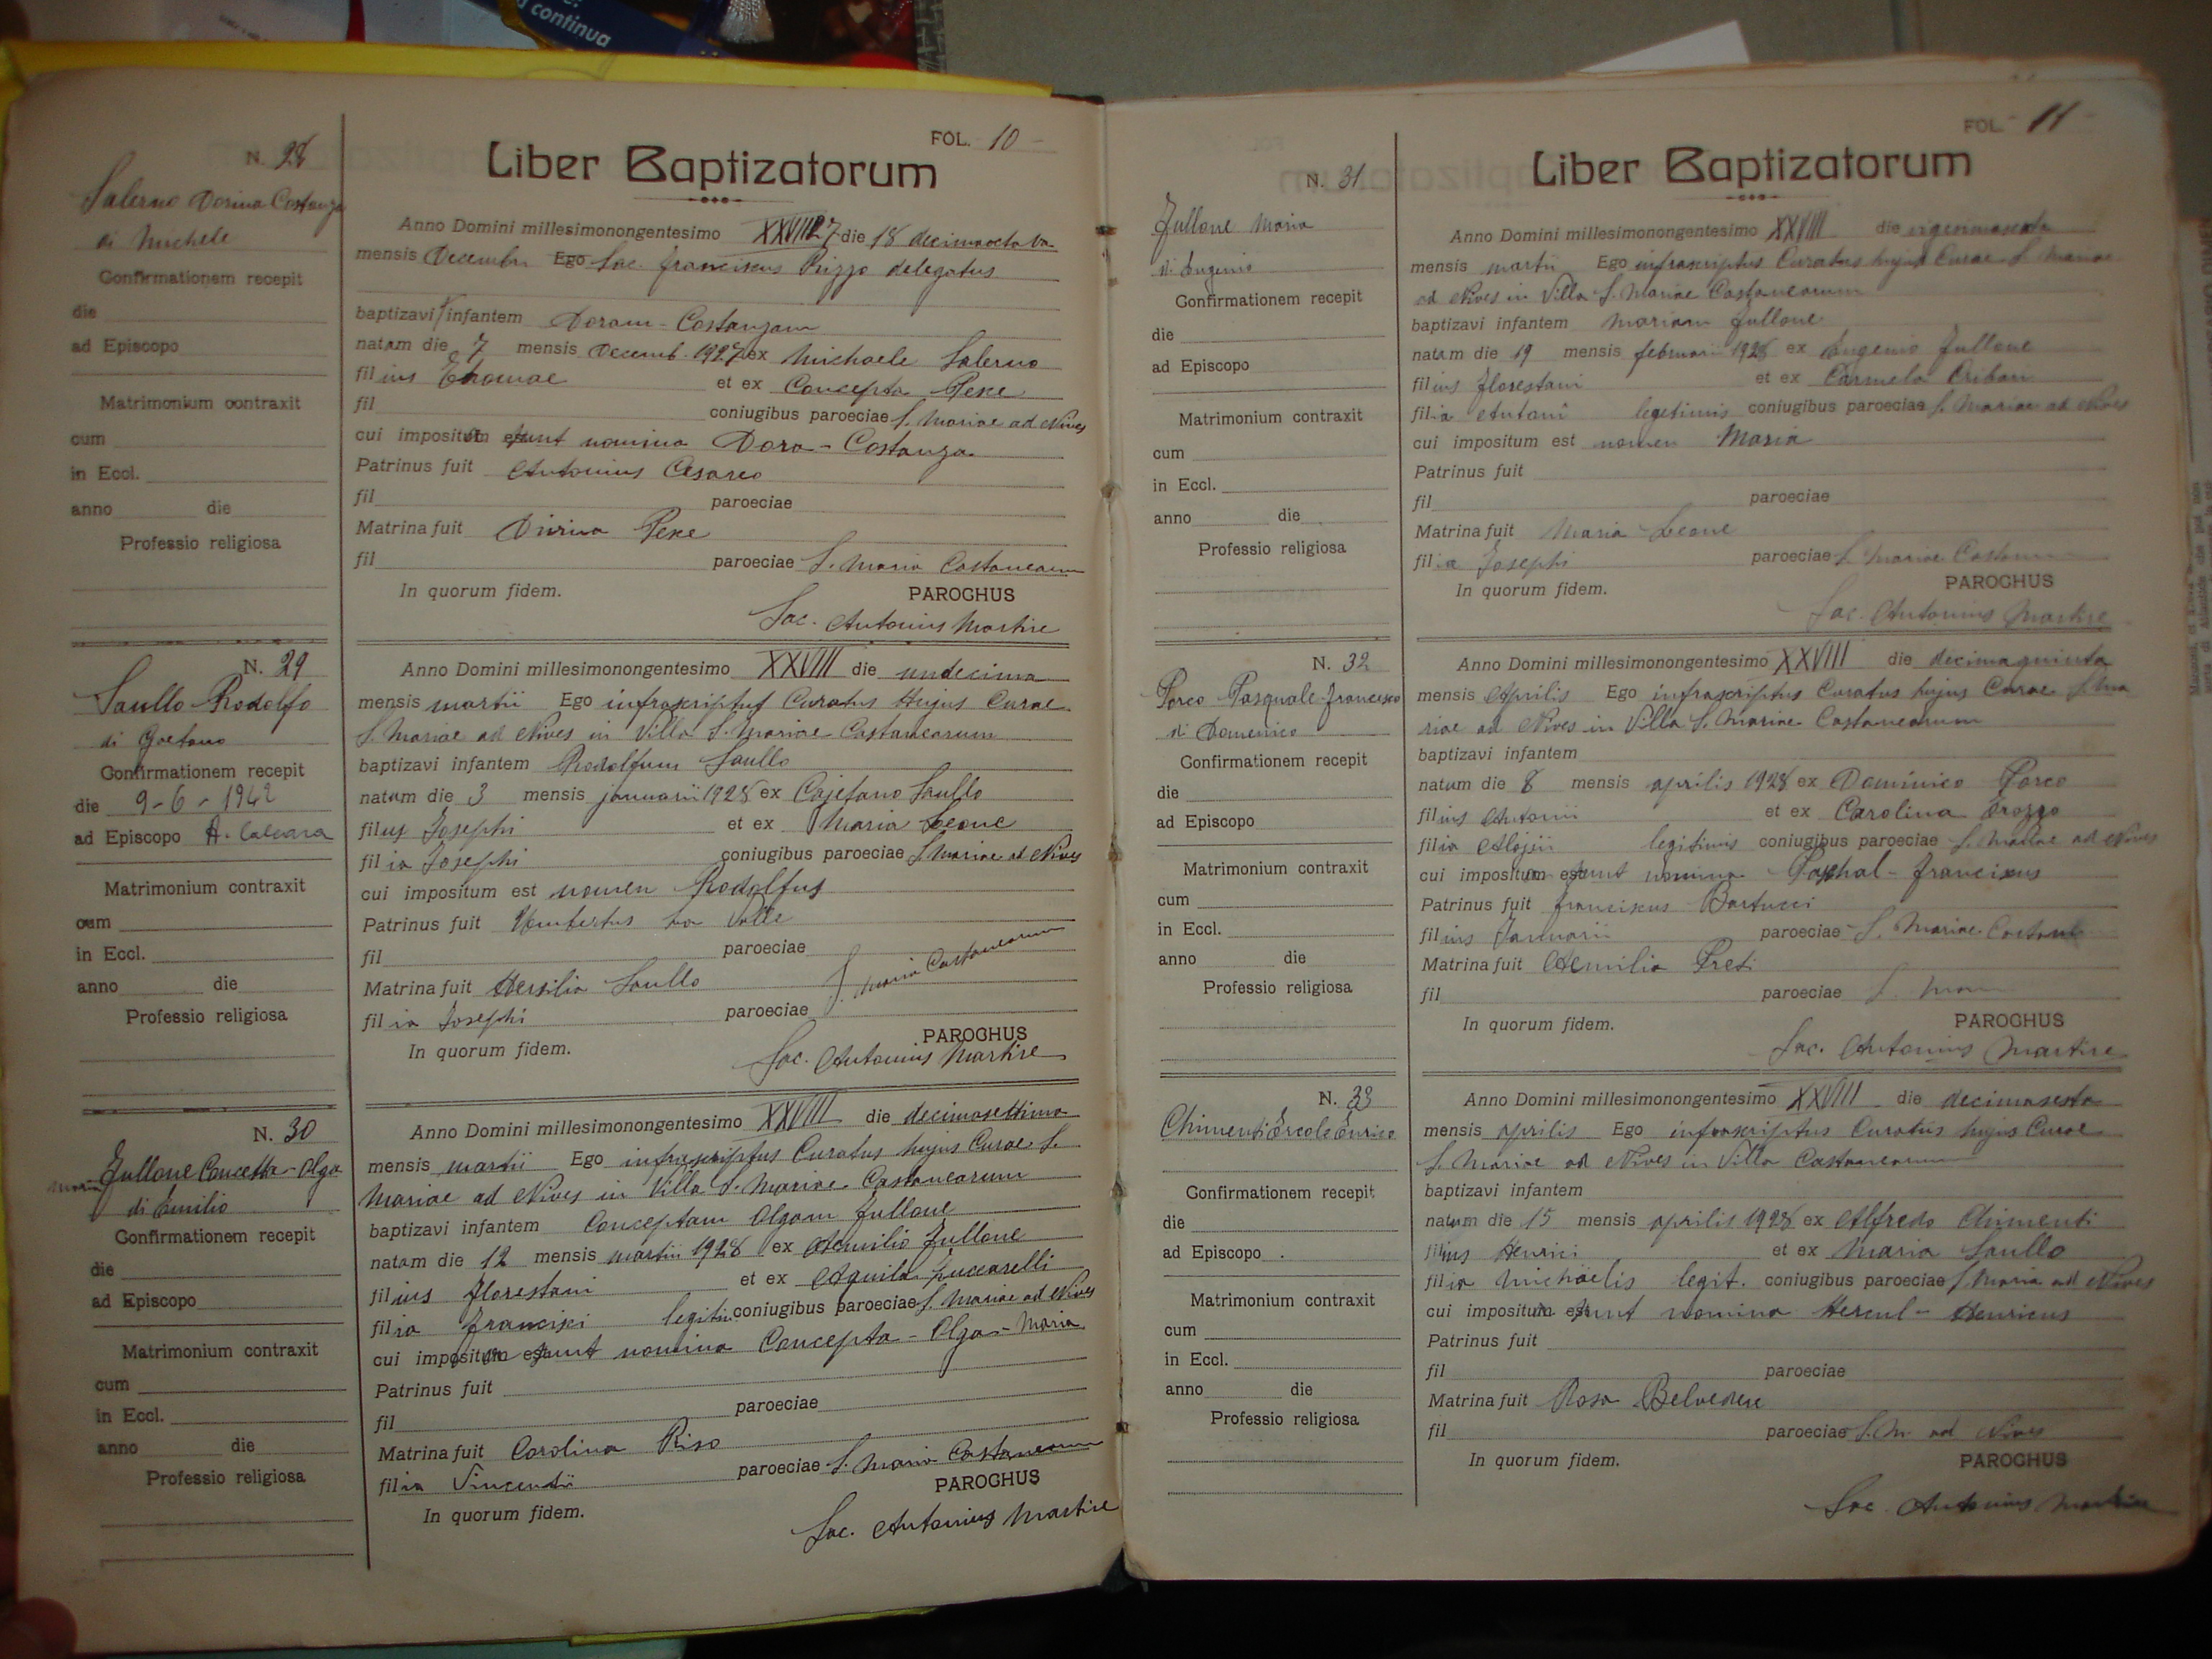 continua
FOL. 10
Liber Baptizatorum
N. 28
Salerno Dorina Costanza
di Michele
Confirmationem recepit
die
ad Episcopo
Matrimonium contraxit
cum
in Eccl.
anno die
Professio religiosa
Anno Domini millesimonongentesimo 27 die 18 decimaoctava
mensis Decembri Ego Sac. Franciscus Rizzo delegatus
baptizavi infantem Doram - Costanzam
natam die 7 mensis Decemb. 1927 ex Michaele Salerno
filius Thomae et ex Concepta Pece
fil coniugibus paroeciae S. Mariae ad Nives
cui imposita sunt nomina Dora - Costanza
Patrinus fuit Antonius Cesareo
fil paroeciae
Matrina fuit Pece
fil paroeciae S. Maria Castanearum
In quorum fidem. PAROCHUS
Sac. Antonius Martire
N. 29
Saullo Rodolfo
di Gaetano
Confirmationem recepit
die 9-6-1942
ad Episcopo A. Calcara
Matrimonium contraxit
cum
in Eccl.
anno die
Professio religiosa
Anno Domini millesimonongentesimo XXVIII die undecima
mensis martii Ego infrascriptus Curatus Hujus Curae
S. Mariae ad Nives in Villa S. Mariae Castanearum
baptizavi infantem Rodolfum Saullo
natum die 3 mensis januarii 1928 ex Cajetano Saullo
filius Josephi et ex Maria Leone
filia Josephi coniugibus paroeciae S. Mariae ad Nives
cui impositum est nomen Rodolfus
Patrinus fuit Humbertus La Valle
fil paroeciae
Matrina fuit Hersilia Saullo
filia Josephi paroeciae S. Maria Castanearum
In quorum fidem. PAROCHUS
Sac. Antonius Martire
N. 30
Fullone Concetta - Olga
Maria
di Emilio
Confirmationem recepit
die
ad Episcopo
Matrimonium contraxit
cum
in Eccl.
anno die
Professio religiosa
Anno Domini millesimonongentesimo XXVIII die decimasettima
mensis martii Ego infrascriptus Curatus hujus Curae S.
Mariae ad Nives in Villa S. Mariae Castanearum
baptizavi infantem Conceptam Olgam Fullone
natam die 12 mensis martii 1928 ex Aemilio Fullone
filius Florestani et ex Aquila Luccarelli
filia Francisci legiti. coniugibus paroeciae S. Mariae ad Nives
cui imposita sunt nomina Concepta - Olga - Maria
Patrinus fuit
fil paroeciae
Matrina fuit Carolina Riso
filia Vincentii paroeciae S. Maria Castanearum
In quorum fidem. PAROCHUS
Sac. Antonius Martire
FOL. 11
Liber Baptizatorum
N. 31
Fullone Maria
di Eugenio
Confirmationem recepit
die
ad Episcopo
Matrimonium contraxit
cum
in Eccl.
anno die
Professio religiosa
Anno Domini millesimonongentesimo XXVIII die vigesimasexta
mensis martii Ego infrascriptus Curatus hujus Curae S. Mariae
ad Nives in Villa S. Mariae Castanearum
baptizavi infantem Mariam Fullone
natam die 19 mensis februarii 1928 ex Eugenio Fullone
filius Florestani et ex Carmela Cribari
filia Antonii legitimis coniugibus paroeciae S. Mariae ad Nives
cui impositum est nomen Maria
Patrinus fuit
fil paroeciae
Matrina fuit Maria Leone
filia Josephi paroeciae S. Mariae
In quorum fidem. PAROCHUS
Sac. Antonius Martire
N. 32
Porco Pasquale-Francesco
di Domenico
Confirmationem recepit
die
ad Episcopo
Matrimonium contraxit
cum
in Eccl.
anno die
Professio religiosa
Anno Domini millesimonongentesimo XXVIII die decimaquinta
mensis Aprilis Ego infrascriptus Curatus hujus Curae S. Ma
riae ad Nives in Villa S. Mariae Castanearum
baptizavi infantem
natum die 8 mensis aprilis 1928 ex Dominico Porco
filius Antonii et ex Carolina
filia legitimis coniugibus paroeciae S. Mariae ad Nives
cui imposita sunt nomina Paschal - Franciscus
Patrinus fuit Franciscus Bartucci
filius Januarii paroeciae S. Mariae
Matrina fuit Aemilia Preti
fil paroeciae
In quorum fidem. PAROCHUS
Sac. Antonius Martire
N. 33
Chimenti Ercole Enrico
Confirmationem recepit
die
ad Episcopo
Matrimonium contraxit
cum
in Eccl.
anno die
Professio religiosa
Anno Domini millesimonongentesimo XXVIII die decimasesta
mensis aprilis Ego infrascriptus Curatus hujus Curae
S. Mariae ad Nives in Villa Castanearum
baptizavi infantem
natum die 15 mensis aprilis 1928 ex Alfredo Chimenti
filius Henrici et ex Maria Saullo
filia Michaelis legit. coniugibus paroeciae S. Maria ad Nives
cui imposita sunt nomina Hercul - Henricus
Patrinus fuit
fil paroeciae
Matrina fuit Rosa Belvedere
fil paroeciae S. M. ad Nives
In quorum fidem. PAROCHUS
Sac. Antonius Martire